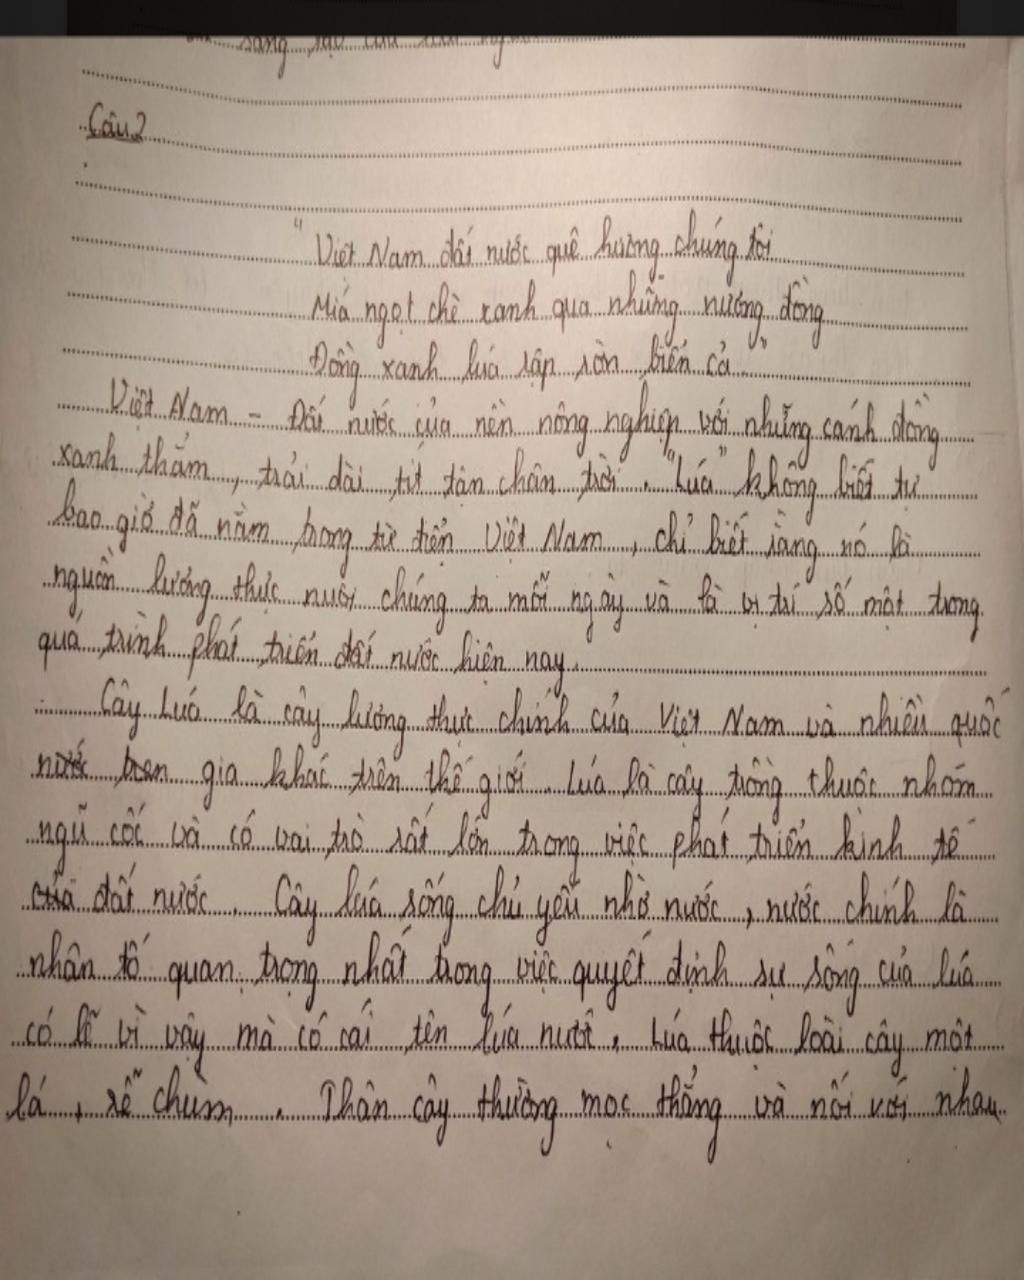 Câu 2
" Việt Nam đất nước quê hương chúng tôi
Miá ngọt chè xanh qua những nương đồng
Đồng xanh luá rập rờn biển cả "
Việt Nam - Đất nước của nền nông nghiệp với những cánh đồng
xanh thẳm, trải dài tít tận chân trời. "Luá" không biết tự
bao giờ đã nằm trong từ điển Việt Nam, chỉ biết rằng nó là
nguồn lương thực nuôi chúng ta mỗi ngày và là vị trí số một trong
quá trình phát triển đất nước hiện nay.
Cây Luá là cây lương thực chính của Việt Nam và nhiều quốc
gia khác trên thế giới. Lúa là cây trồng thuộc nhóm
ngũ cốc và có vai trò rất lớn trong việc phát triển kinh tế
của đất nước. Cây luá sống chủ yếu nhờ nước, nước chính là
nhân tố quan trọng nhất trong việc quyết định sự sống của luá
có lẽ vì vậy mà có cái tên luá nước. Luá thuộc loài cây một
lá, rễ chùm. Thân cây thường mọc thẳng và nối với nhau